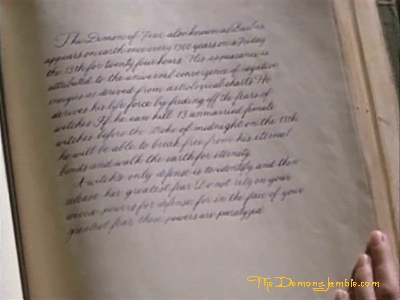 The Demon of Fear also known as Barbas
appears on earth once every 1300 years on a Friday
the 13th for twenty four hours. His appearance is
attributed to the universal convergence of negative
energies as derived from astrological charts. He
derives his life force by feeding off the fears of
witches. If he can kill 13 unmarried female
witches before the stroke of midnight on the 13th
he will be able to break free from his eternal
bonds and walk the earth for eternity.
A witch's only defense is to identify and then
release her greatest fear. Do not rely on your
wicca-powers for defense for in the face of your
greatest fear, those powers are paralyzed
The Demons Jamble.com